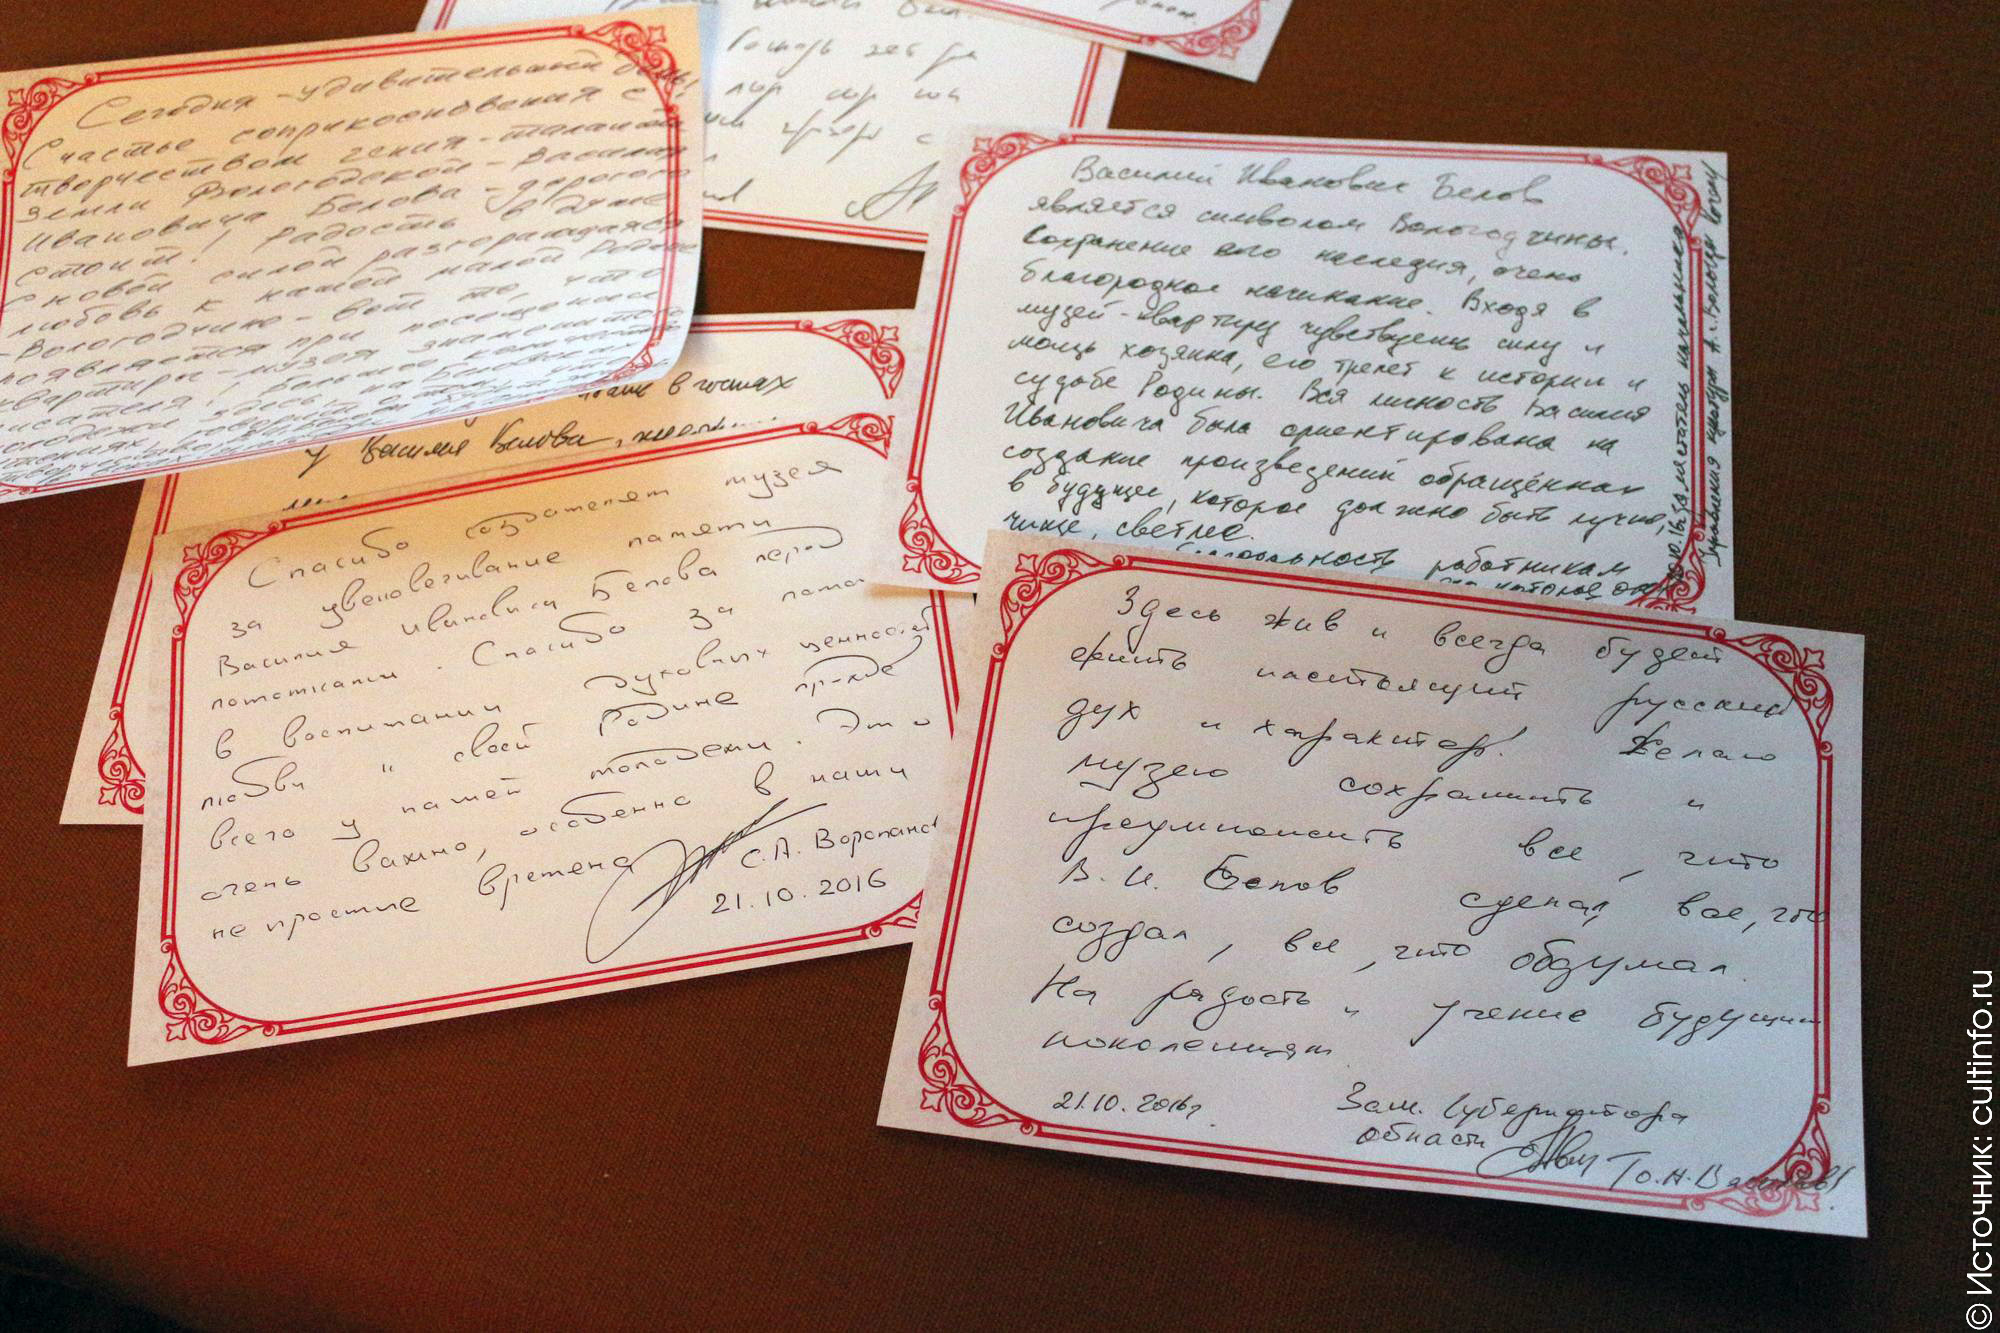 Сегодня - удивительный день!
Счастье соприкосновения с
творчеством гения - таланта
земли Вологодской - Василия
Ивановича Белова - дорогого
стоит! Радость в душе
с новой силой разгорающаяся
любовь к нашей малой Родине
- Вологодчине - вот то, что
появляется при посещении
квартиры - музея знаменитого
писателя! Большое
молодежи здесь, на Беловских
чтениях, говорит о
Господь
в гостях
у Василия Белова,
Спасибо создателям музея
за увековечивание памяти
Василия Ивановича Белова перед
потомками. Спасибо за
в воспитании духовных ценностей
любви к своей Родине прежде
всего у нашей молодежи. Это и
очень важно, особенно в наши
не простые времена
С.А. Воропанов
21.10.2016
Василий Иванович Белов
является символом Вологодчины.
Сохранение его наследия, очень
благородное начинание. Входя в
музей-квартиру чувствуешь силу и
мощь хозяина, его трепет к истории и
судьбе Родины. Вся личность Василия
Ивановича была ориентирована на
создание произведений обращённых
в будущее, которое должно быть лучше,
чище, светлее.
работникам
которое
10.16. Заместитель начальника
Управления культуры А. г. Вологды
Здесь жив и всегда будет
жить настоящий русский
дух и характер! Желаю
музею сохранить и
преумножить все, что
В.И. Белов сделал, все, что
создал, все, что обдумал.
На радость и учение будущим
поколениям.
21.10.2016г.
Зам. Губернатора
области
© Источник: cultinfo.ru